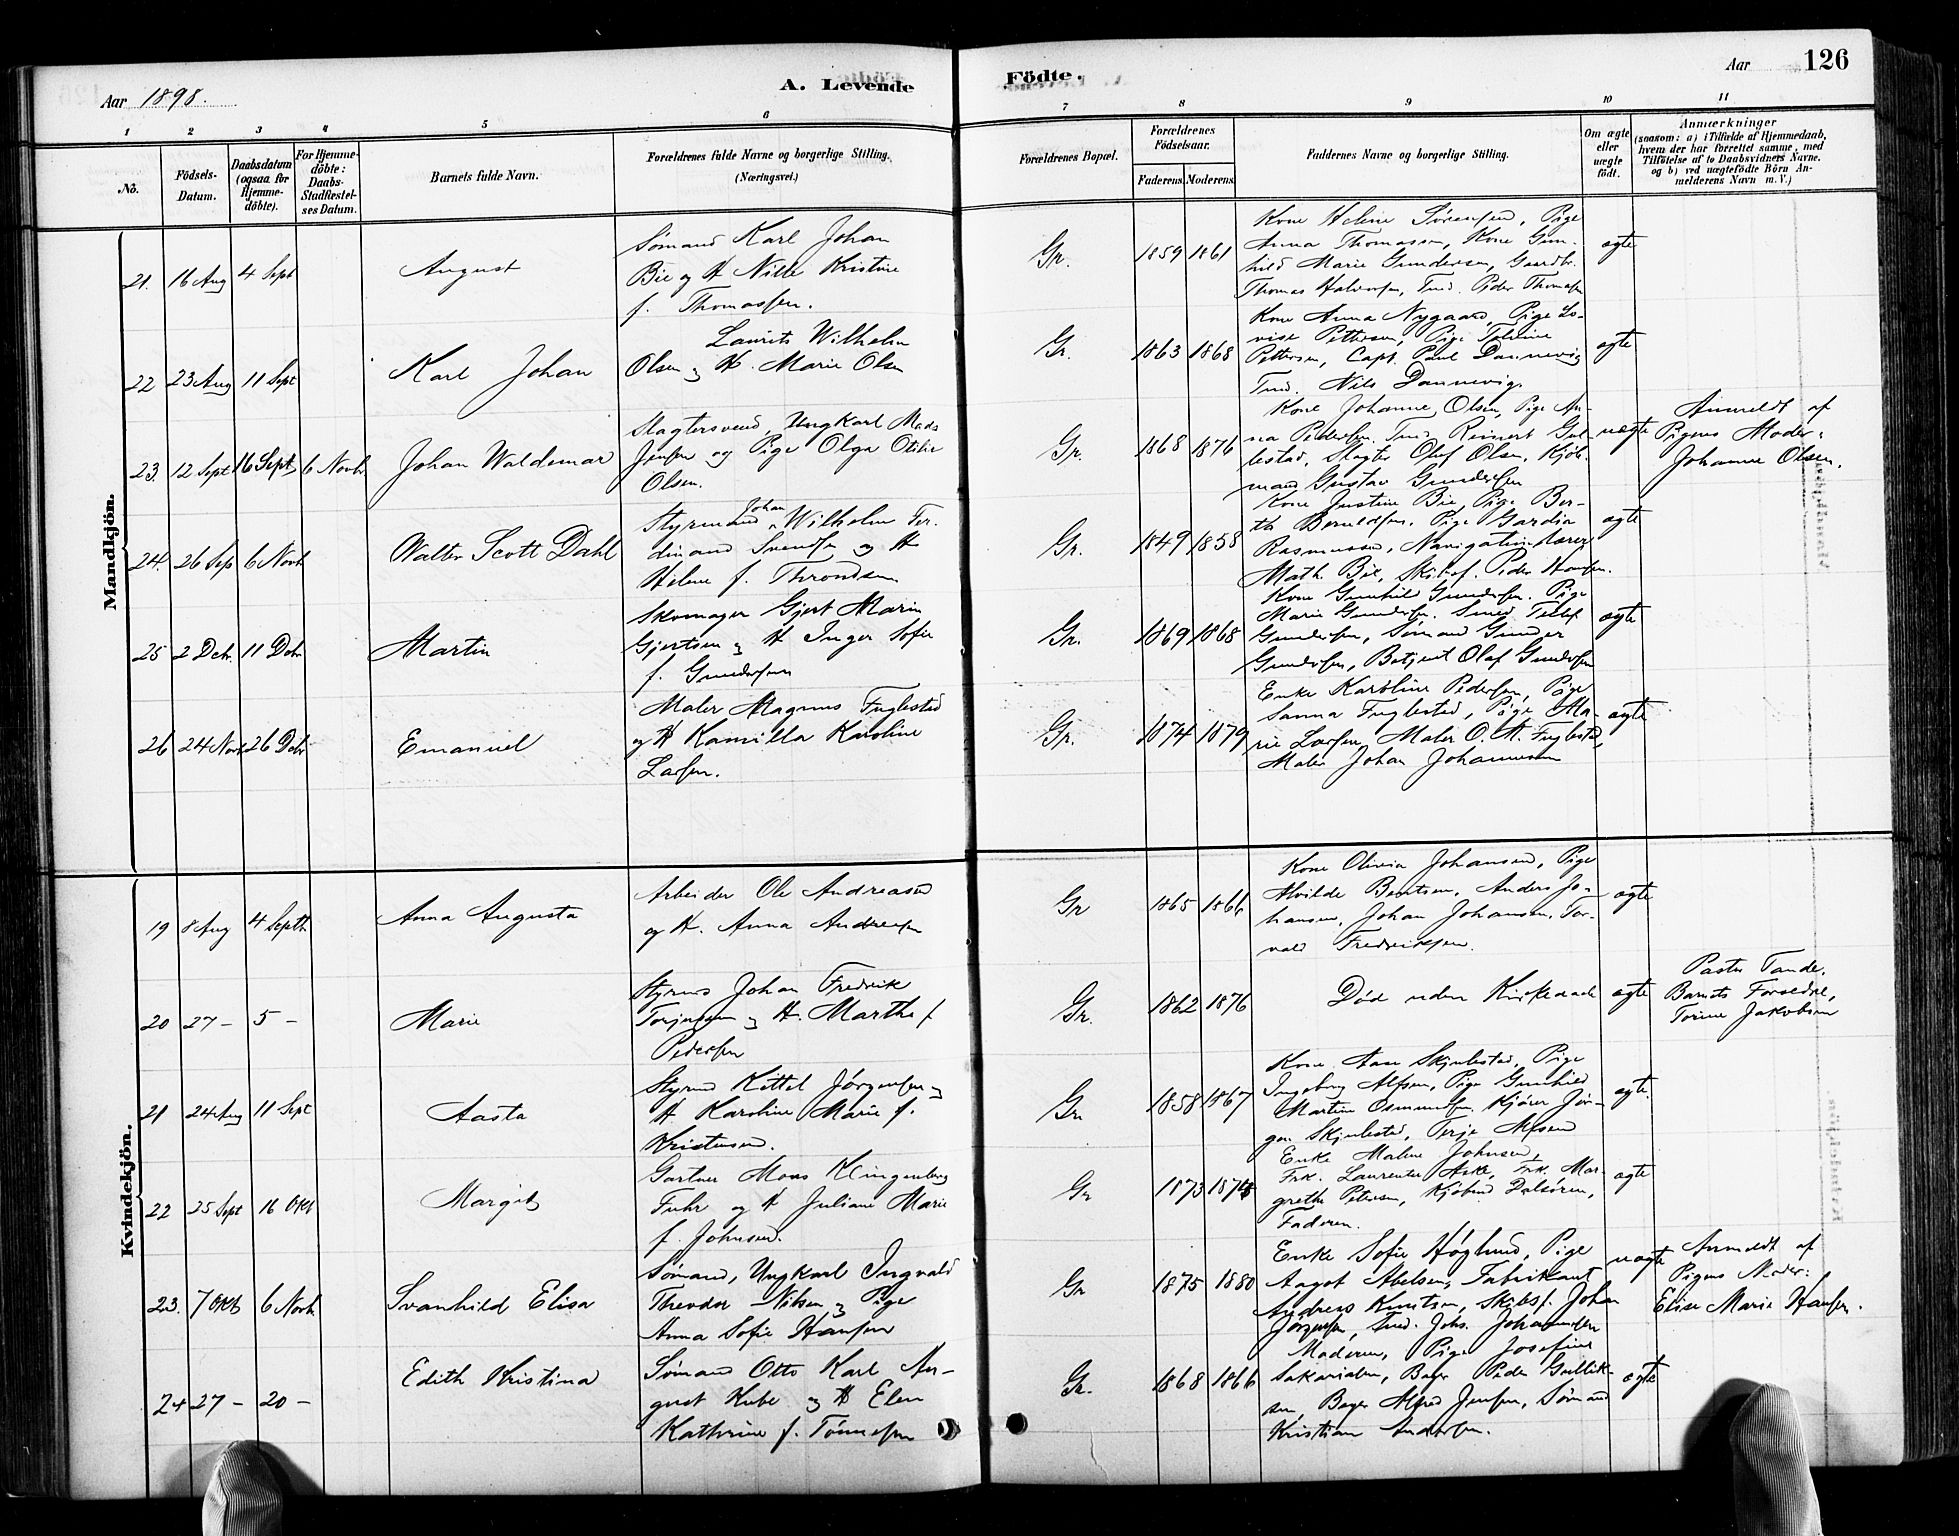 Aar 1898.
A. Levende
Födte.
Aar
126
1
2
3
4
5
6
7
8
9
10
11
No.
Födsels-
Datum.
Daabsdatum
(ogsaa for
Hjemme-
döbte).
For Hjemme-
döbte:
Daabs-
Stadfæstel-
ses Datum.
Barnets fulde Navn.
Forældrenes fulde Navne og borgerlige Stilling.
(Næringsvei.)
Forældrenes Bopæl.
Forældrenes
Födselsaar.
Faderens.
Moderens.
Faddernes Navne og borgerlige Stilling.
Om ægte
eller
uægte
födt.
Anmærkninger
(saasom: a) i Tilfælde af Hjemmedaab,
hvem der har forrettet samme, med
Tilföielse af to Daabsvidners Navne.
og b) ved uægtefödte Börn An-
melderens Navn m. V.)
Mandkjön.
21. 16 Aug 4 Sept
August
Sømand Karl Johan
Bie og H Nille Kristine
f. Thomassen.
Gr.
1859 1861
Kone Helene Sørensen, Pige
Anna Thomassen, Kone Gun-
hild Marie Gundersen, Gaardb.
Thomas Halvorsen, Tmd. Peder Thomasen
ægte
22 23 Aug 11 Sept
Karl Johan
Laurits Wilhelm
Olsen og H. Marie Olsen
Gr.
1863 1868
Kone Anna Nygaard, Pige Lo-
vise Pettersen, Pige Tomine
Pettersen, Capt. Paul Dannevig
Tmd. Nils Dannevig.
ægte
23. 12 Sept 16 Sept 6 Novbr
Johan Waldemar
Slagtersvend, Ungkarl Mads
Jensen og Pige Olga Otilie
Olsen.
Gr.
1868 1876
Kone Johanne Olsen, Pige An-
na Pedersen. Tmd Reinert Gul-
lestad, Slagter Oluf Olsen, Kjøb-
mand Gustav Gundersen
uægte
Anmeldt af
Pigens Moder:
Johanne Olsen.
24. 26 Sep 6 Novb
Walter Scott Dahl
Johan
Styrmand Wilhelm Fer-
dinand Svendsen og H
Helene f. Throndsen
Gr.
1849 1858
Kone Justine Bie, Pige Ber-
the Berntsen. Pige Gardia
Rasmussen, Navigationslærer
Math. Bie, Skibsf. Peder Hansen.
ægte
25 2 Dcbr. 11 Dcbr
Martin
Skomager Gjert Marin
Gjertsen og H Inger Sofie
f. Gundersen
Gr.
1869 1868
Kone Gunhild Gundersen. Pige
Marie Gundersen. Smed Tellef
Gundersen, Sømand Gunder
Gundersen, Betjent Olaf Gundersen
ægte
26 24 Novb 26 Dcbr
Emanuel
Maler Magnus Fuglestad
og H Kamilla Karoline
Larsen.
Gr.
1874 1879
Enke Karoline Pedersen, Pige
Sanna Fuglestad, Pige Ma-
rie Larsen, Maler O. M. Fuglestad,
Maler Johan Johannesen
ægte
Kvindekjön.
19 8 Aug 4 Septb
Anna Augusta
Arbeider Ole Andreasen
og H. Anna Andreasen
Gr
1865 1866
Kone Olivia Johansen, Pige
Alvilde Bentsen, Anders Jo-
hansen, Johan Johansen, Tor-
vald Fredriksen.
ægte
20 27 - 5 -
Marie
Styrmd Johan Fredrik
Torjusen og H. Marthe f
Pedersen
Gr.
1862 1876
Død uden Kirkedaab
ægte
Pastor Tande.
Barnets Forældre,
Torine Jakobsen
21 24 Aug 11 Sept
Aasta
Styrmd Kittel Jørgensen og
H Karoline Marie f.
Kristensen.
Gr.
1858 1867
Kone Aase Skjulestad, Pige
Ingeborg Alfsen, Pige Gunhild
Martine Osmundsen. Kjører Jør-
gen Skjulestad, Terje Alfsen
ægte.
22 25 Sept 16 Oktb
Margit
Gartner Mons Klingenberg
Fuhr og H Juliane Marie
f. Johnsen.
Gr
1873 1875
Enke Malene Johnsen,
Frk. Laurentse Aske, Frk. Mar-
grethe Petersen, Kjøbmd Dalsøren,
Faderen.
ægte
23. 7 Oktb 6 Novb
Svanhild Elisa
Sømand, Ungkarl Ingvald
Theodor Nilsen, og Pige
Anna Sofie Hansen
Gr
1875 1880
Enke Sofie Høglund, Pige
Aagot Abelsen, Fabrikant
Anders Knutsen, Skibsf. Johan
Jørgensen, Tmd. Johs. Johannesen
uægte
Anmeldt af
Pigens Moder:
Elise Marie Hansen.
24 27 - 20 -
Edith Kristina
Sømand Otto Karl Au-
gust Kube og H Elen
Kathrine f. Tønnesen
Gr.
1868 1866
Moderen, Pige Josefine
Sakariasen, Bager Peder Gullik-
sen, Bager Alfred Jensen, Sømand
Kristian Andersen.
ægte